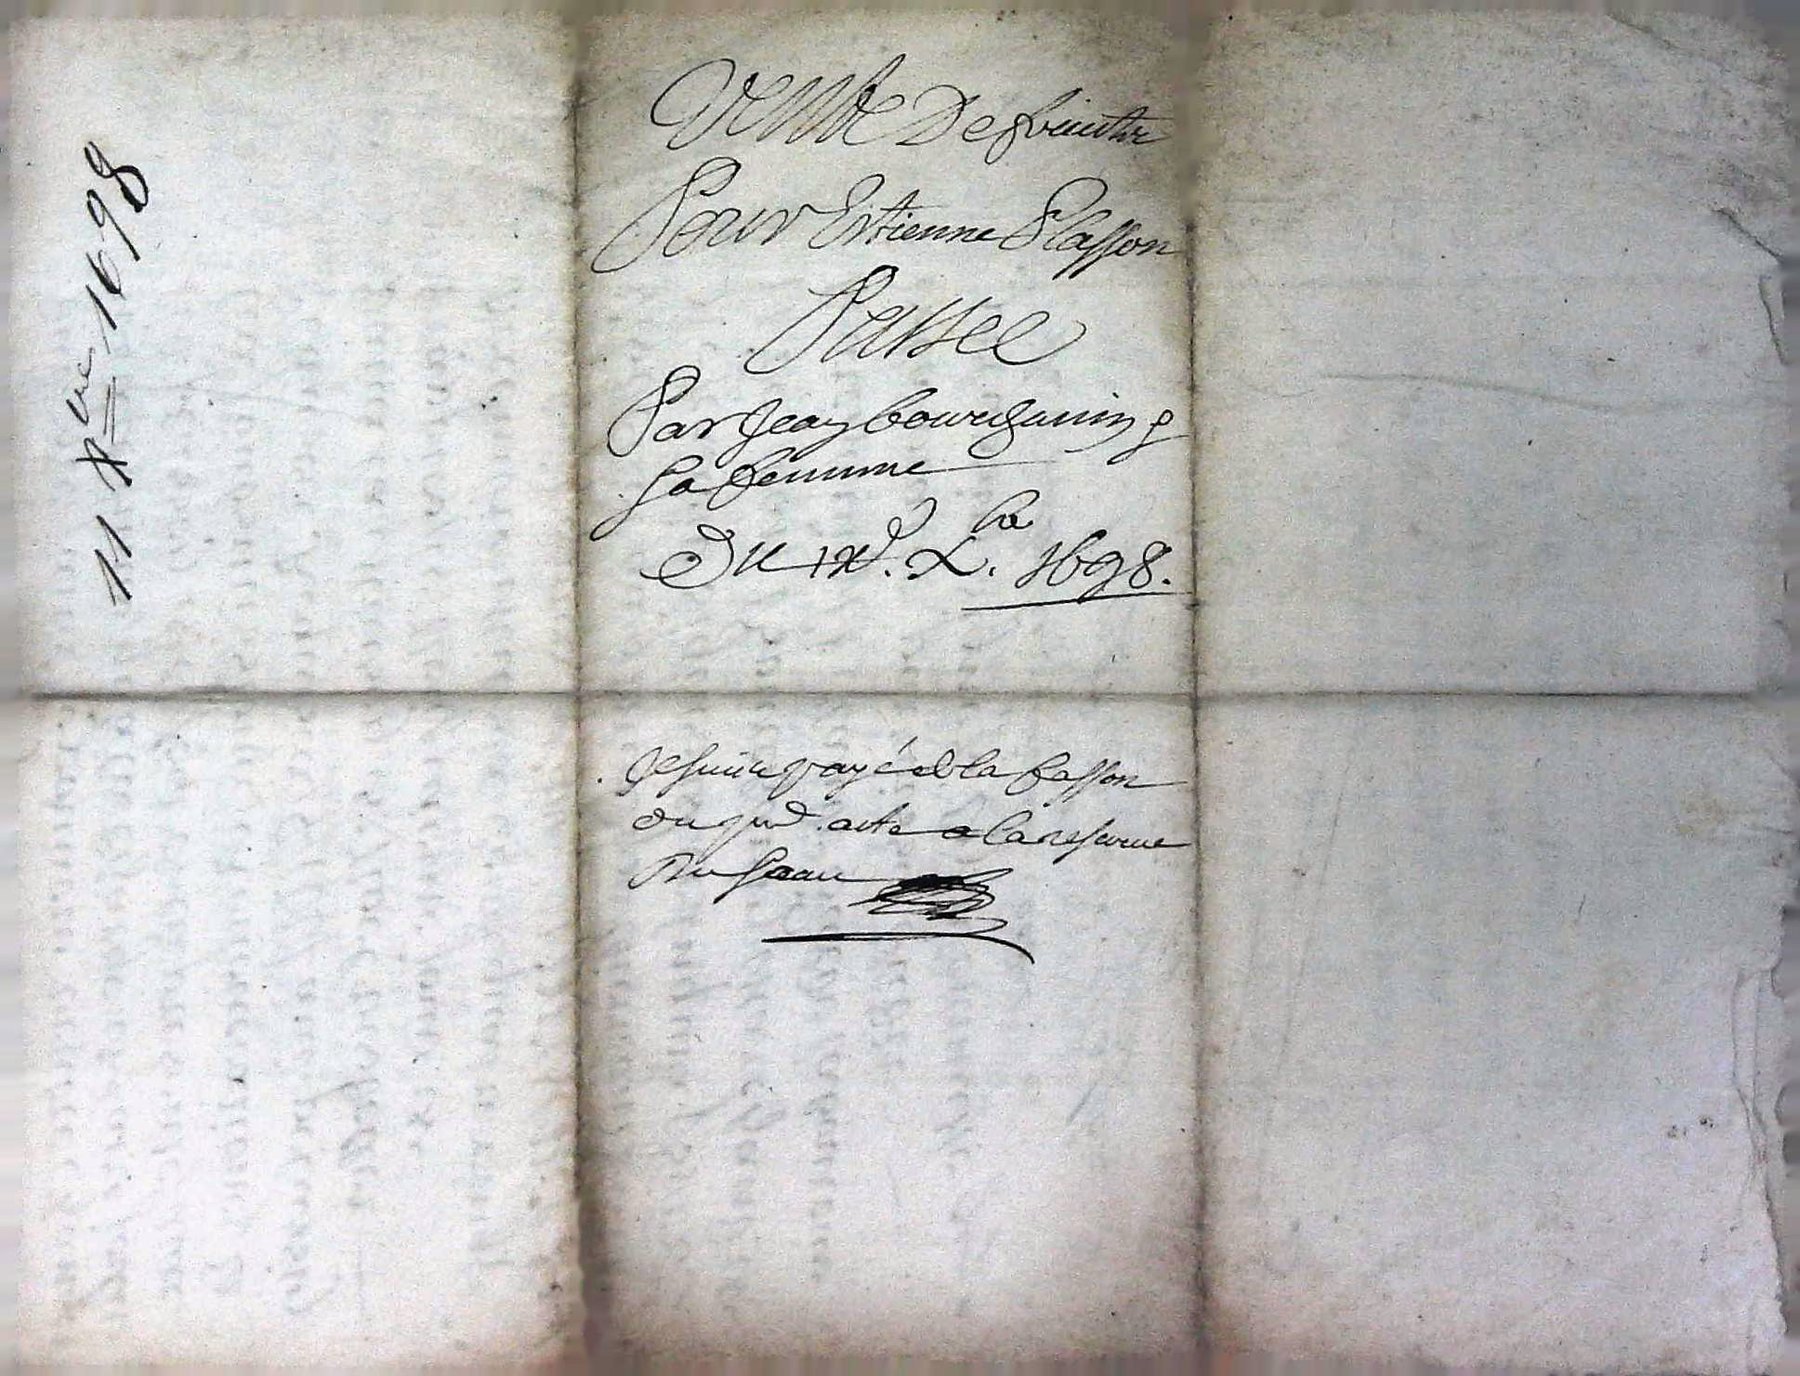 11 Xbre 1698
Vente Defrinitve
Pour Estienne Plasson
Passee
Par Jean bourgunin &
Sa femme
Du xe. Xbre. 1698.
Je suis payé de la fasson
du pnt. acte a la reserve
Du sceau